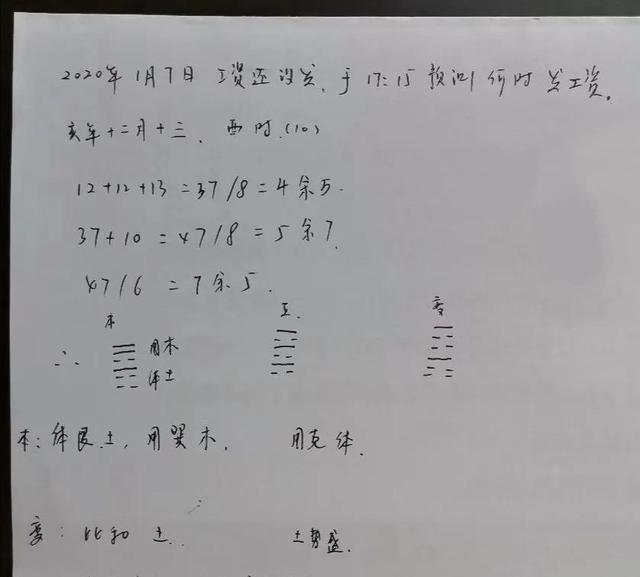 2020年1月7日 工资还没发,于17:15预测何时发工资。
亥年十二月十三、酉时.(10)
12+12+13=37/8=4余5.
37+10=47/8=5余7.
47/6=7余5.
本 互. 变
∴ 用木
体土
本:体艮土,用巽木, 用克体.
变:比和 土.. 土势盛.